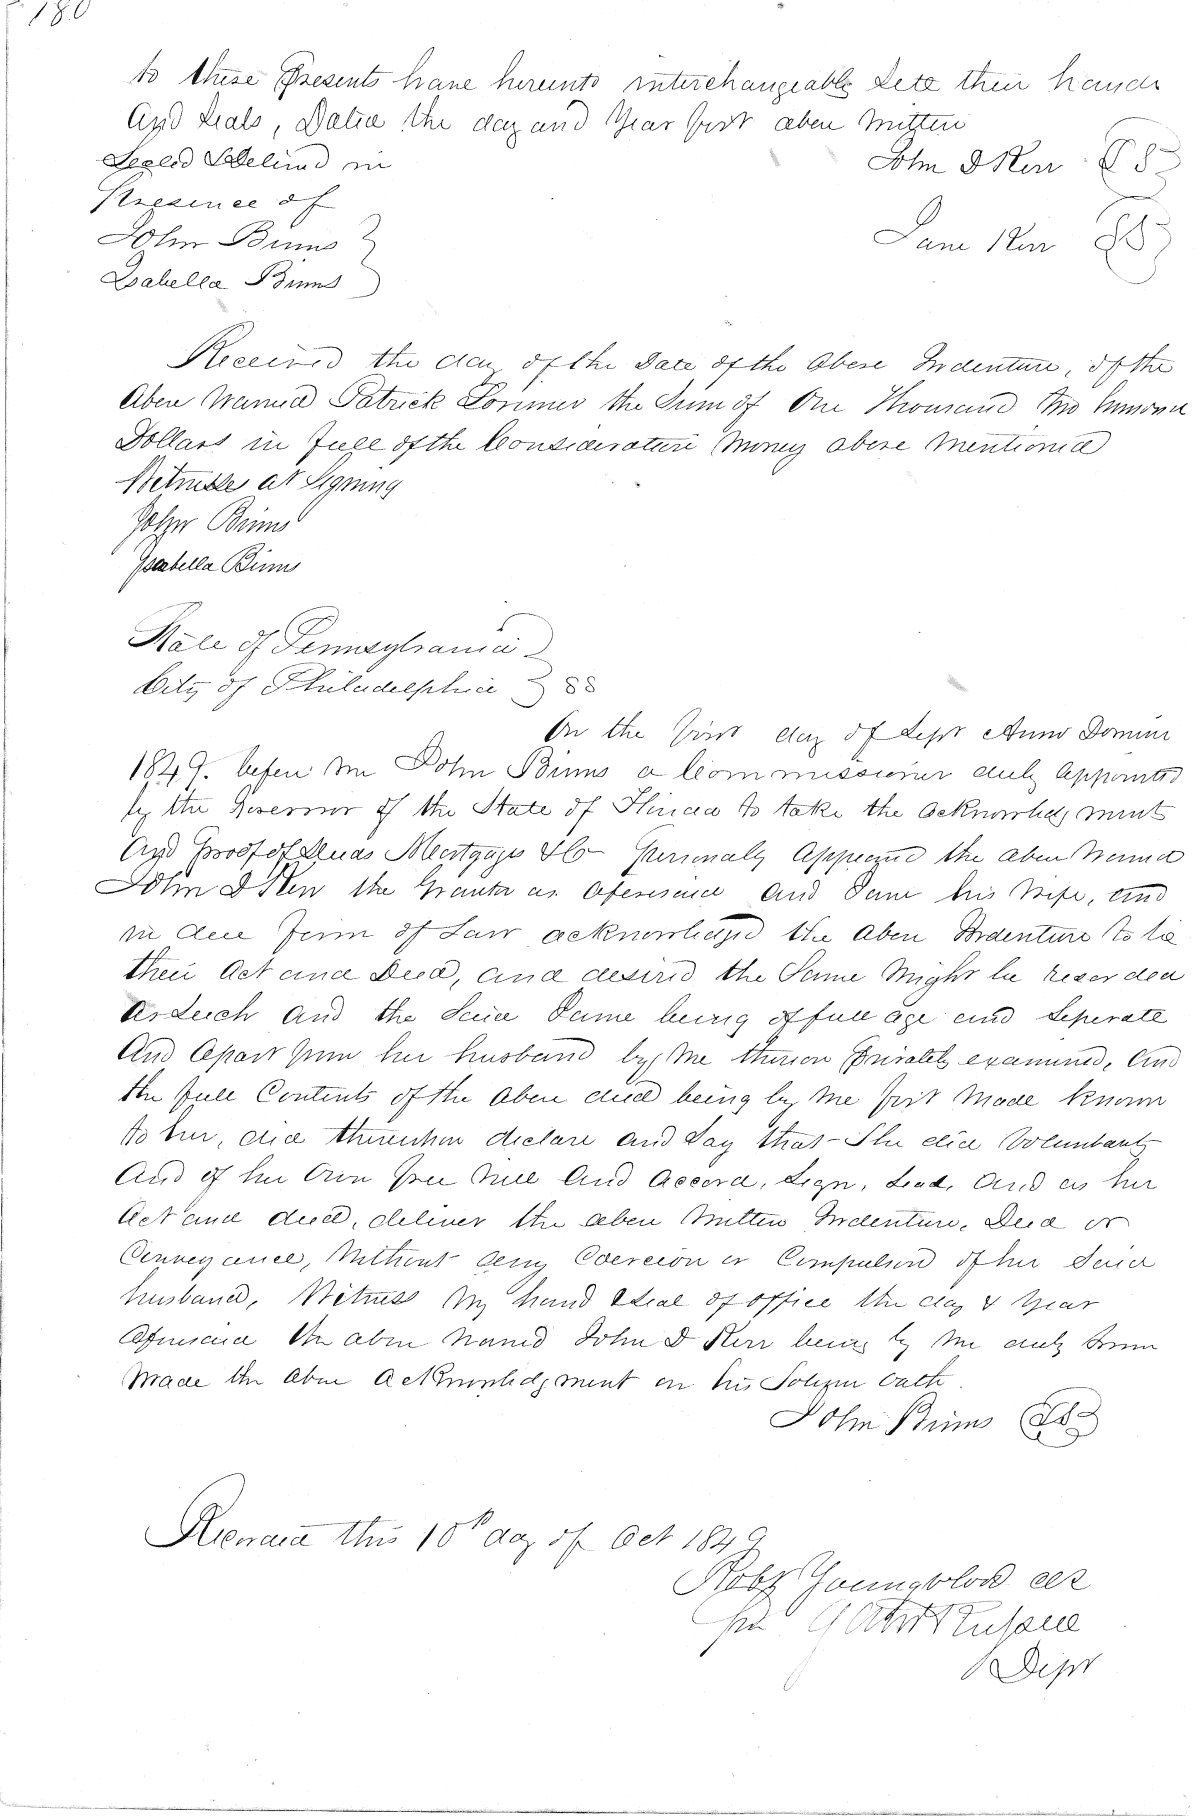 180
to these Presents have hereunto interchangeably Sett their hands
And Seals, Dated the day and Year first above Written
Sealed & Delivered in
Presence of
John D Kerr LS
John Binns
Jane Kerr LS
Isabella Binns
Received the day of the Date of the above Indenture, of the
Above Named Patrick Lorimer the Sum of One Thousand Two hundred
Dollars in full of the Consideration Money above Mentioned
Witness at Signing
John Binns
Isabella Binns
State of Pennsylvania
City of Philadelphia SS
On the first day of Sept Anno Domini
1849. before me John Binns a Commissioner duly Appointed
by the Governor of the State of Florida to take the acknowledgments
And Proof of Deeds Mortgages &Co Personally Appeared the above Named
John D Kerr the Grantor as aforesaid and Jane his Wife, and
in due form of Law acknowledged the above Indenture to be
their Act and Deed, and desired the Same Might be recorded
As Such And the Said Jane being of full age and Seperate
And Apart from her husband by Me thereon Privately examined, And
the full Contents of the above deed being by Me first Made Known
to her, did thereupon declare and Say that She did Voluntarily
And of her Own free Will And Accord, Sign, Seal, And as her
Act and deed, deliver the above Written Indenture, Deed or
Conveyance, Without any Coercion or Compulsion of her Said
husband, Witness My hand & Seal of office the day & Year
Aforesaid the above Named John D Kerr being by Me duly Sworn
Made the above Acknowledgment on his Solemn Oath.
John Binns LS
Recorded this 10th day of Oct 1849
Robt Youngblood clk
per Russell
Dept